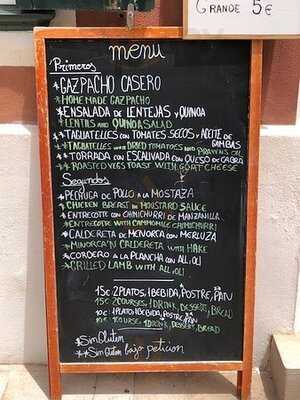 GRANDE 5€
menu
Primeros
*GAZPACHO CASERO
*HOME MADE GAZPACHO
*ENSALADA DE LENTEJAS Y QUINOA
*LENTILS AND QUINOA SALAD
*TAGLIATELLES CON TOMATES SECOS Y ACEITE DE GAMBAS
*TAGLIATELLES WITH DRIED TOMATOES AND PRAWNS OIL
**TORRADA CON ESCALIVADA CON QUESO DE CABRA
**ROASTED VEGS TOAST WITH GOAT CHEESE
Segundos
*PECHUGA DE POLLO A LA MOSTAZA
*CHICKEN BREAST IN MOUSTARD SAUCE
*ENTRECOTTE CON CHIMICHURRI DE MANZANILLA
*ENTRECOTTE WITH CAMMOMILE CHIMICHURRI
*CALDERETA DE MENORCA CON MERLUZA
*MINORCA'N CALDERETA WITH HAKE
*CORDERO A LA PLANCHA CON ALI,OLI
*GRILLED LAMB WITH ALI,OLI
15€ 2 PLATOS, 1 BEBIDA, POSTRE, PAN
15€ 2 COURSES, 1 DRINK, DESSERT, BREAD
10€ 1 PLATO, 1 BEBIDA, POSTRE, PAN
10€ 1 COURSE, 1 DRINK, DESSERT, BREAD
*Sin Gluten
**Sin Gluten bajo peticion